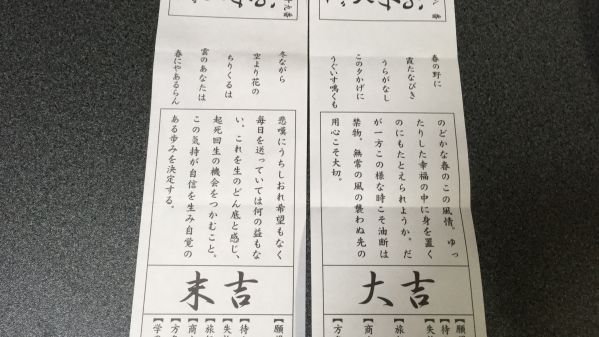 春の野に
霞たなびき
うらがなし
この夕かげに
うぐいす鳴くも
のどかな春のこの風情。ゆっ
たりした幸福の中に身を置く
のにもたとえられようか。だ
が一方この様な時こそ油断は
禁物、無常の風の襲わぬ先の
用心こそ大切。
大吉
【願
【待
【失
【旅
【商
【方
冬ながら
空より花の
ちりくるは
雲のあなたは
春にやあるらん
悲嘆にうちしおれ希望もなく
毎日を送っていては何の益もな
い。これを生のどん底と感じ、
起死回生の機会をつかむこと。
この気持が自信を生み自覚の
ある歩みを決定する。
末吉
【願
【待
【失
【旅
【商
【方
【学